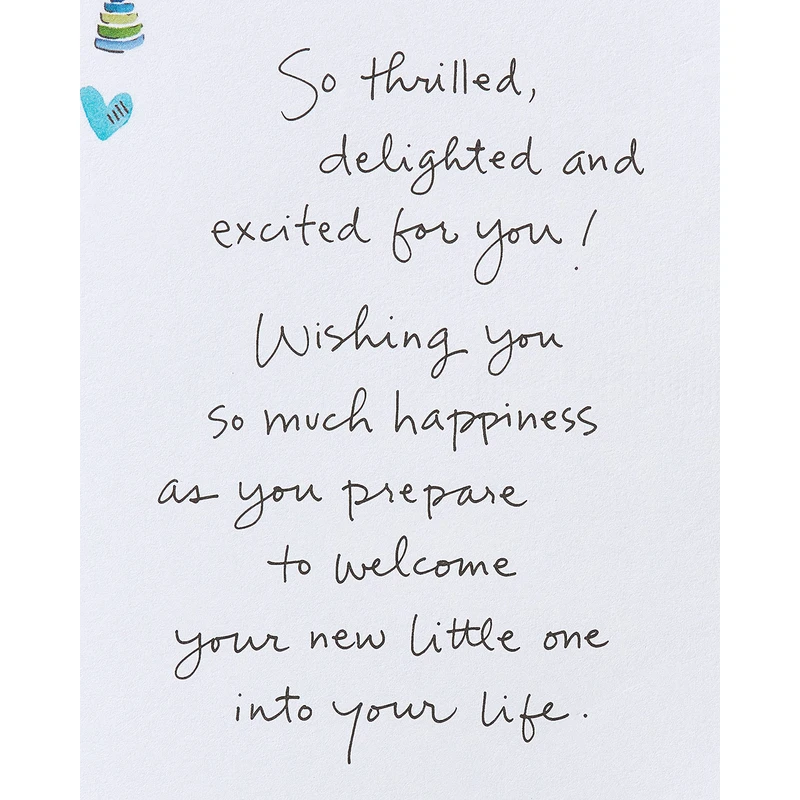 So thrilled,
delighted and
excited for you!
Wishing you
so much happiness
as you prepare
to welcome
your new little one
into your life.